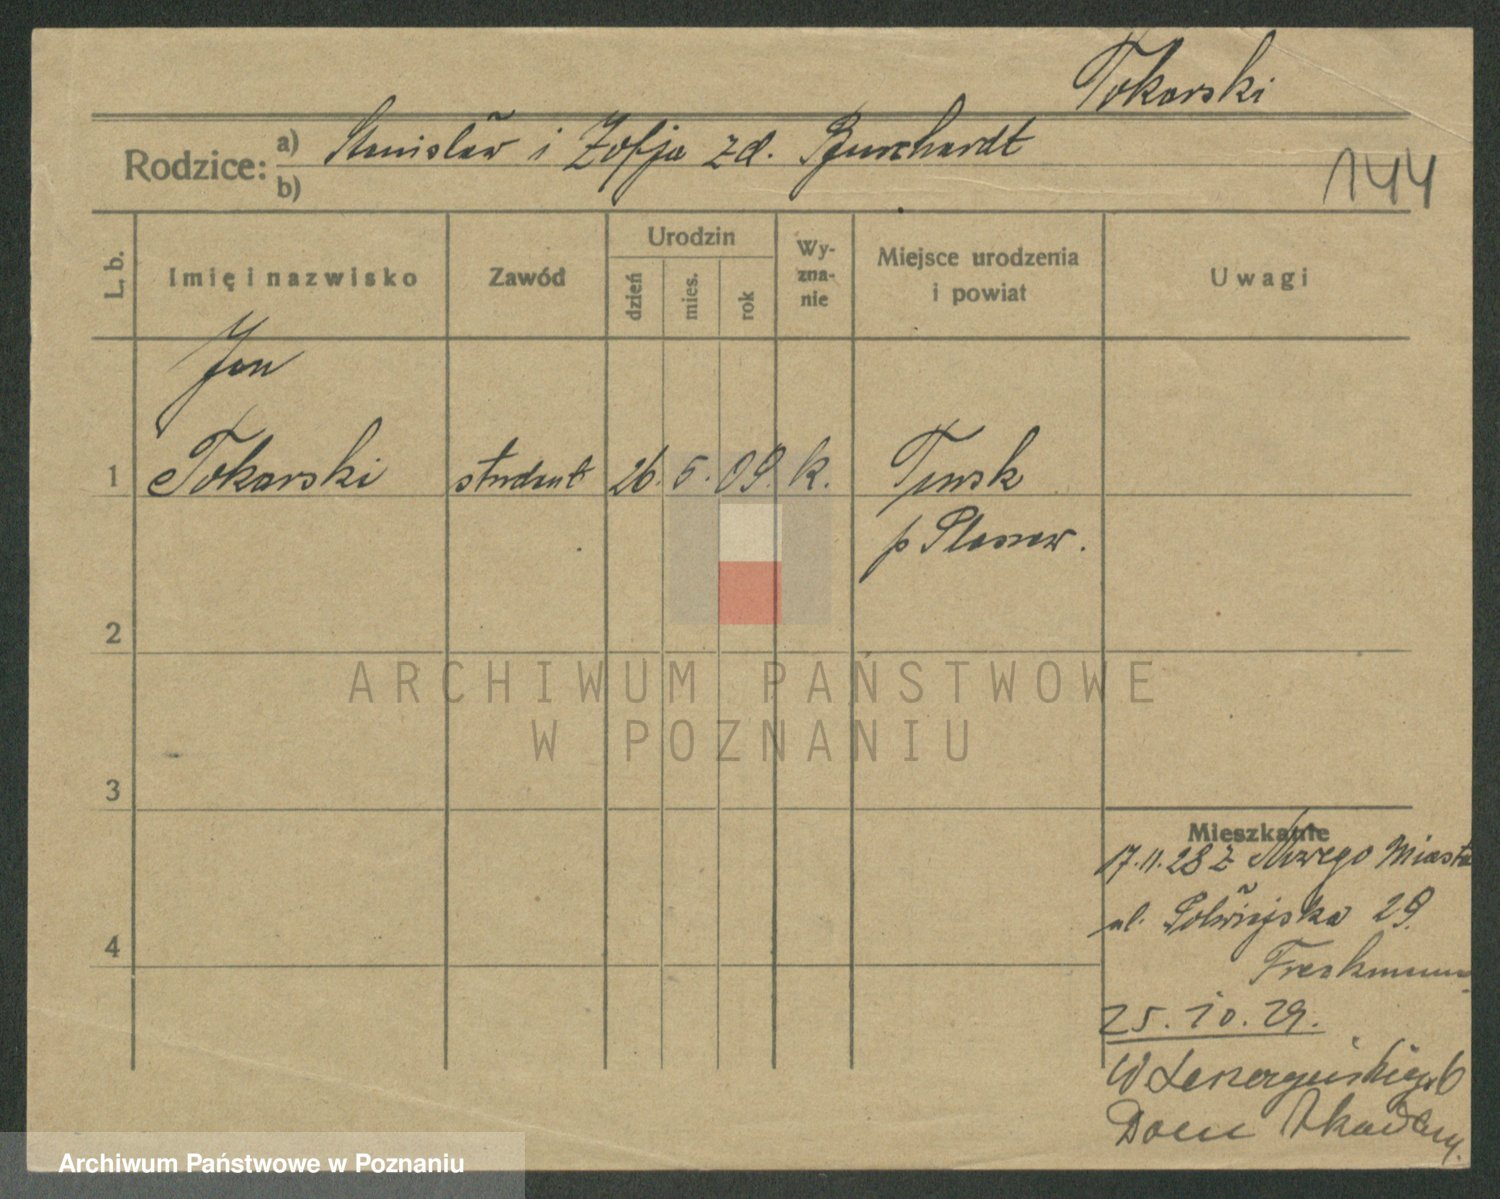 Tokarski
Rodzice: a) Stanisław i Zofja zd. Burchardt
b)
144
L. b.
Imię i nazwisko
Zawód
Urodzin
dzień
mies.
rok
Wy-
zna-
nie
Miejsce urodzenia
i powiat
Uwagi
Jan
1 Tokarski student 26. 5. 09. k. Tursk
p Plessew.
2
ARCHIWUM PAŃSTWOWE
W POZNANIU
3
Mieszkanie
17.11.28 z Nowego Miasta
ul. Półwiejska 29.
4
25.10.29.
Dom Akadem.
Archiwum Państwowe w Poznaniu